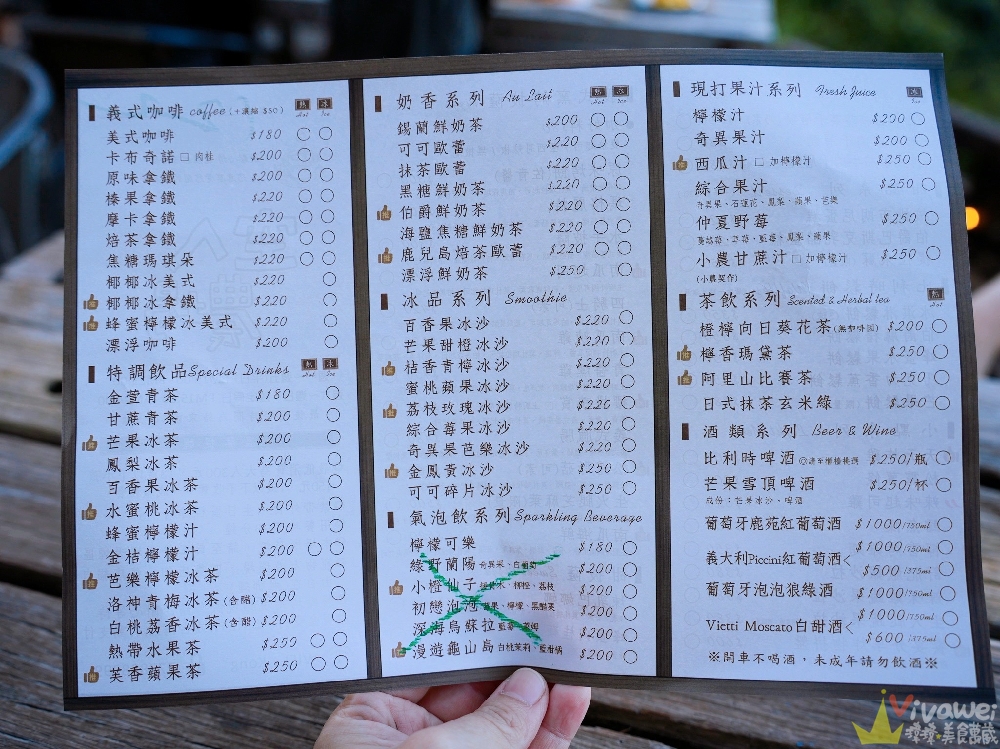 義式咖啡 coffee (+濃縮 $50) 熱 冰
Hot Ice
美式咖啡 $180
卡布奇諾 □ 肉桂 $200
原味拿鐵 $200
榛果拿鐵 $220
摩卡拿鐵 $220
焙茶拿鐵 $220
焦糖瑪琪朵 $220
椰椰冰美式 $220
推 椰椰冰拿鐵 $220
推 蜂蜜檸檬冰美式 $220
漂浮咖啡 $200
特調飲品 Special Drinks 熱 冰
Hot Ice
金萱青茶 $180
甘蔗青茶 $200
推 芒果冰茶 $200
鳳梨冰茶 $200
百香果冰茶 $200
推 水蜜桃冰茶 $200
蜂蜜檸檬汁 $200
金桔檸檬汁 $200
推 芭樂檸檬冰茶 $200
洛神青梅冰茶(含醋) $200
白桃荔香冰茶(含醋) $200
熱帶水果茶 $250
推 芙香蘋果茶 $250
奶香系列 Au Lait 熱 冰
Hot Ice
錫蘭鮮奶茶 $200
可可歐蕾 $220
抹茶歐蕾 $220
黑糖鮮奶茶 $220
推 伯爵鮮奶茶 $220
海鹽焦糖鮮奶茶 $220
推 鹿兒島焙茶歐蕾 $220
漂浮鮮奶茶 $250
冰品系列 Smoothie
百香果冰沙 $220
芒果甜橙冰沙 $220
推 桔香青檸冰沙 $220
蜜桃蘋果冰沙 $220
推 荔枝玫瑰冰沙 $220
綜合莓果冰沙 $220
奇異果芭樂冰沙 $220
推 金鳳黃冰沙 $250
可可碎片冰沙 $250
氣泡飲系列 Sparkling Beverage
檸檬可樂 $180
綠野蘭陽 奇異果、白葡萄 $200
推 小橙仙子 柳橙、荔枝 $200
初戀泡泡 檸檬、黑醋栗 $200
深海烏蘇拉 藍莓 $200
推 漫遊龜山島 白桃茉莉、藍柑橘 $200
現打果汁系列 Fresh Juice 冰
Ice
檸檬汁 $200
奇異果汁 $200
推 西瓜汁 □ 加檸檬汁 $250
綜合果汁 $250
奇異果、石蓮花、鳳梨、蘋果、芭樂
仲夏野莓 $250
蔓越莓、草莓、藍莓、鳳梨、蘋果
小農甘蔗汁 □ 加檸檬汁 $250
(小農契作)
茶飲系列 Scented & Herbal tea 熱
Hot
橙檸向日葵花茶(無咖啡因) $200
推 檸香瑪黛茶 $250
推 阿里山比賽茶 $250
日式抹茶玄米綠 $250
酒類系列 Beer & Wine
比利時啤酒 ◎請至櫃檯挑選 $250/瓶
芒果雪頂啤酒 $250/杯
成份:芒果冰沙、啤酒
葡萄牙鹿苑紅葡萄酒 $1000/750ml
義大利Piccini紅葡萄酒< $1000/750ml
$500/375ml
葡萄牙泡泡狼綠酒 $1000/750ml
Vietti Moscato白甜酒< $1000/750ml
$600/375ml
※開車不喝酒，未成年請勿飲酒※
Vivawei
瑋瑋*美食萬歲